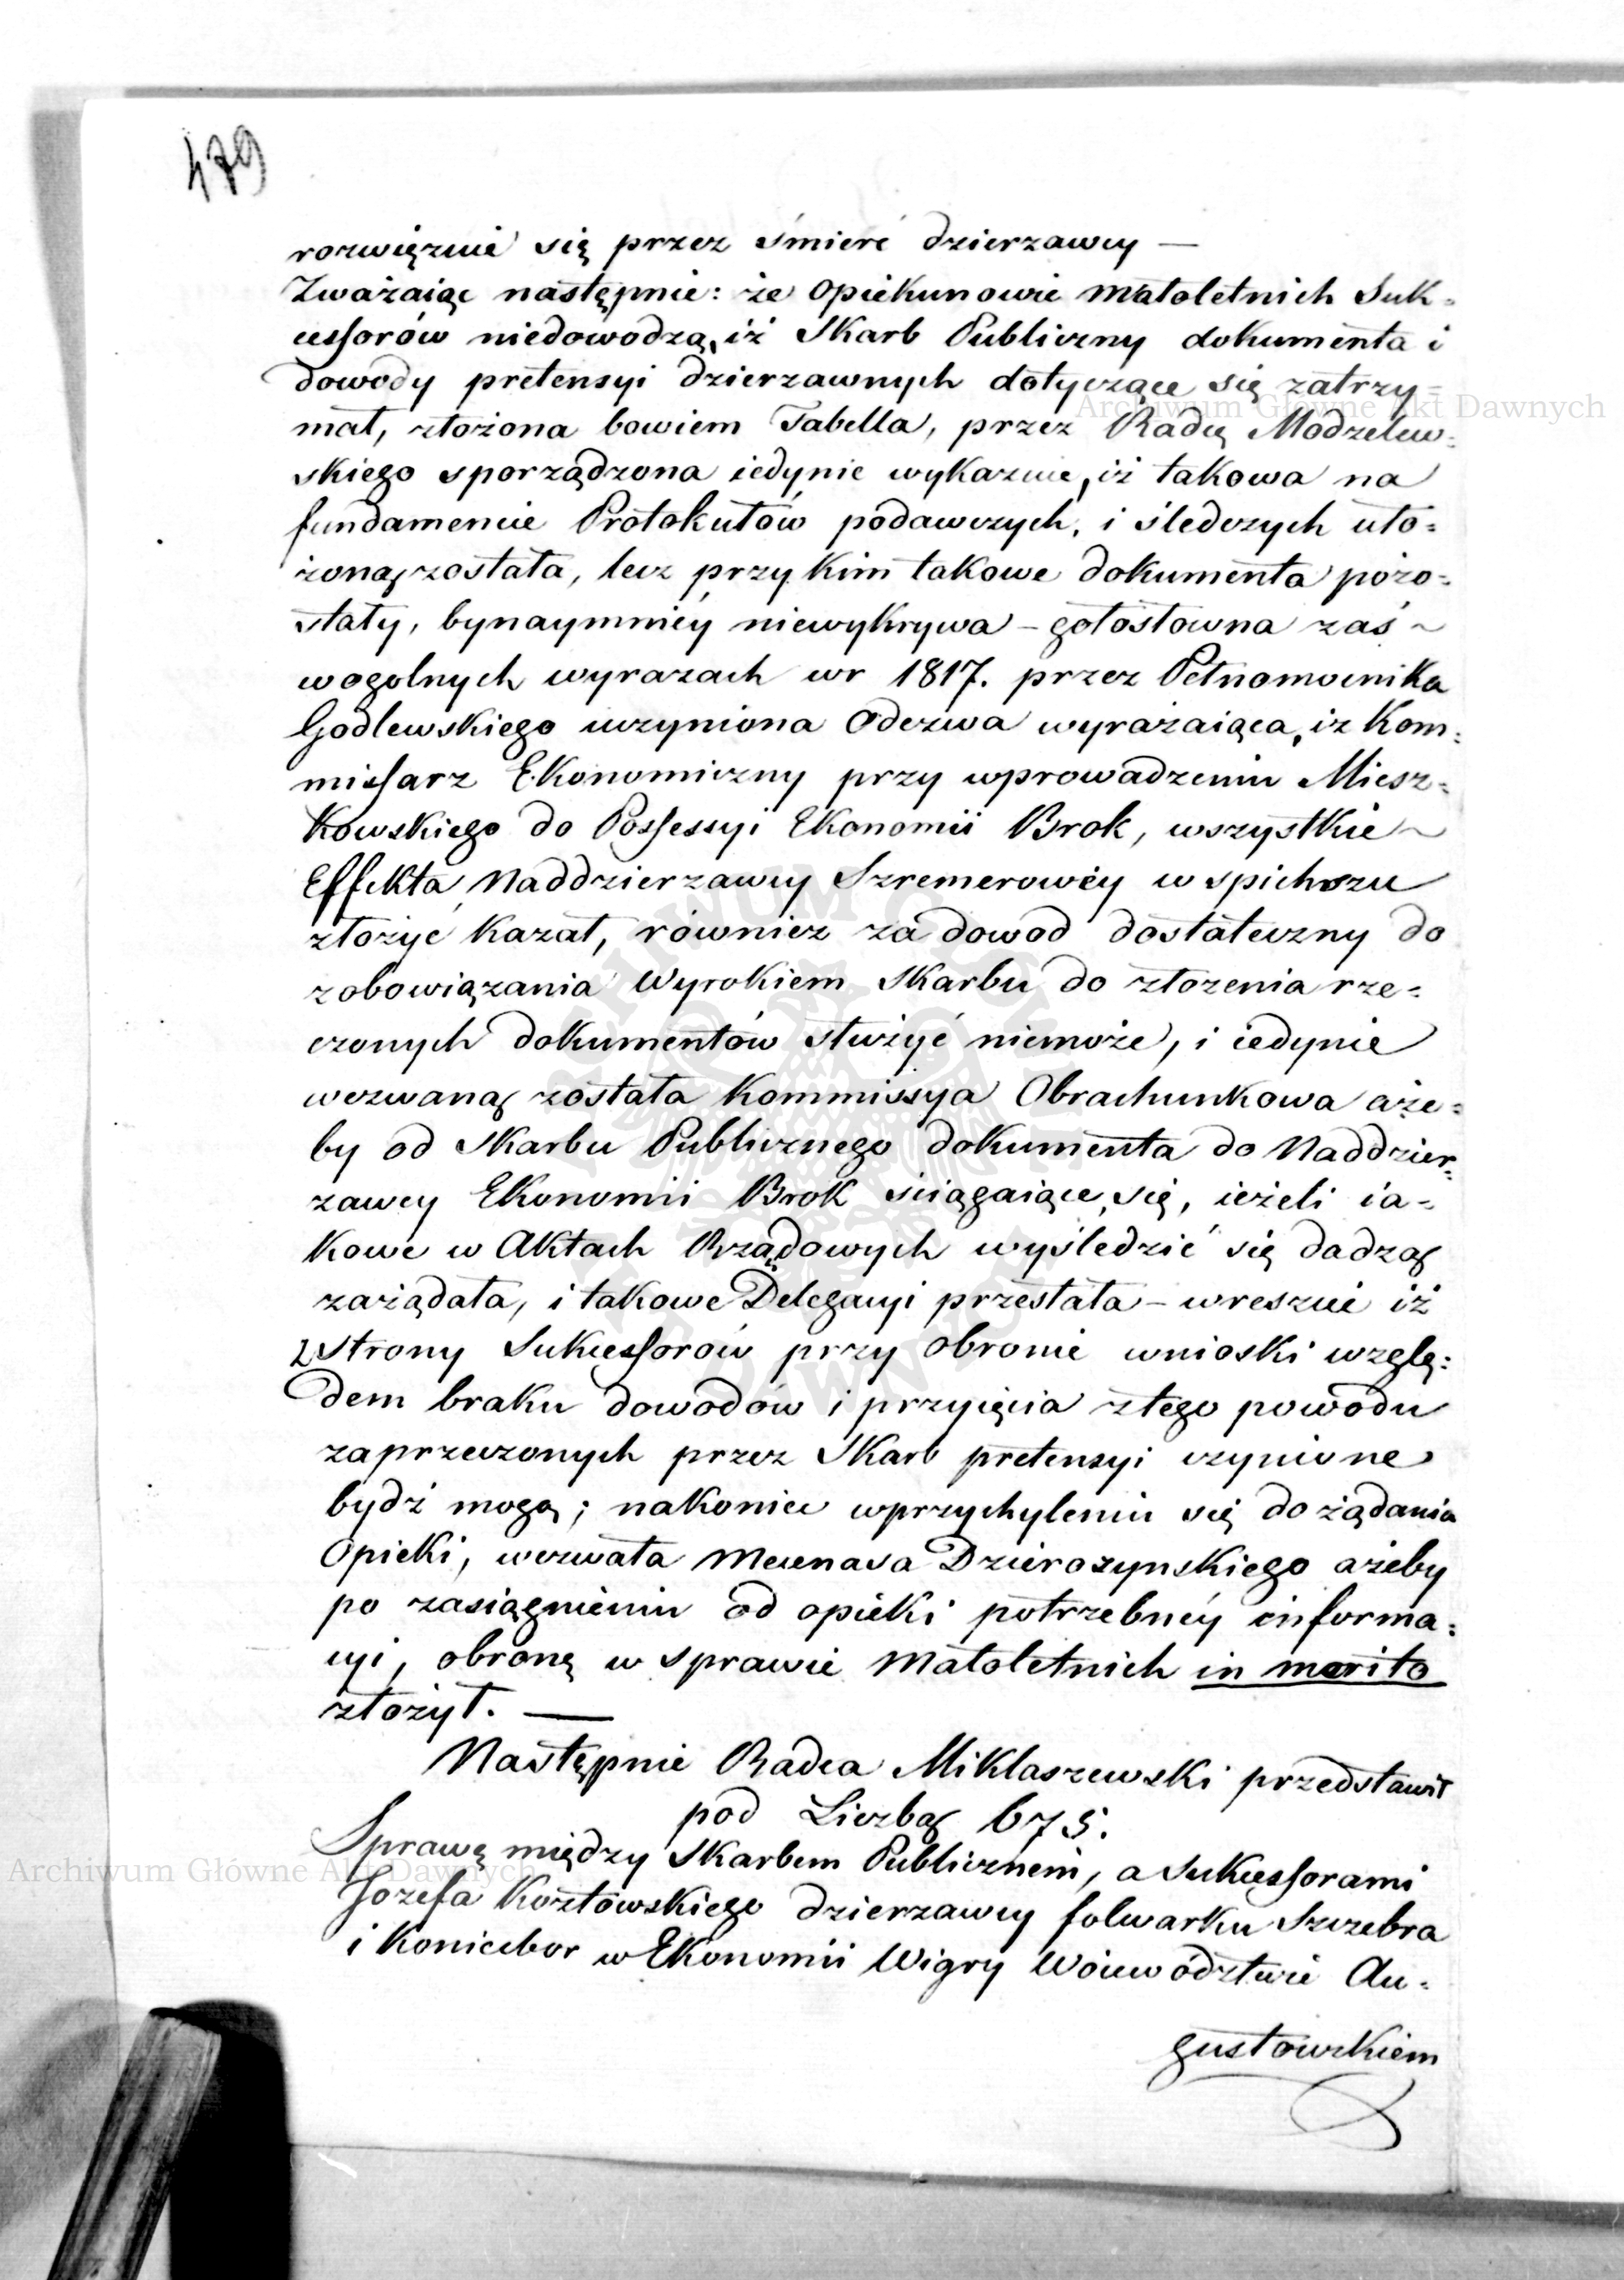 479
rozwięzuie się przez śmierć dzierzawcy —
Zważaiąc następnie: że Opiekunowie Małoletnich Suk=
cessorów niedowodzą, iż Skarb Publiczny dokumenta i
dowody pretensyi dzierzawnych dotyczące się zatrzy=
mał, złożona bowiem Tabella, przez Radcę Modzelew=
skiego sporządzona iedynie wykazuie, iż takowa na
fundamencie Protokułów podawczych, i śledczych uło=
żoną została, lecz przy kim takowe dokumenta pozo=
stały, bynaymniéy niewykrywa – gołosłowna zaś ~
wogolnych wyrazach w r 1817. przez Pełnomocnika
Godlewskiego uczyniona Odezwa wyrażaiąca, iz Kom=
missarz Ekonomiczny przy wprowadzeniu Miesz=
kowskiego do Possessyi Ekonomii Brok, wszystkie ~
Effekta Naddzierzawcy Szremerowéy w spichrzu
złożyć kazał, również za dowod dostateczny do
zobowiązania Wyrokiem Skarbu do złozenia rze=
czonych dokumentów służyć niemoże, i iedynie
wezwaną została Kommissya Obrachunkowa aże=
by od Skarbu Publicznego dokumenta do Naddzier=
zawcy Ekonomii Brok sciągaiące się, ieżeli ia=
kowe w Aktach Rządowych wyśledzić się dadzą
zażądała, i takowe Delegacyi przesłała – wreszcie iż
z strony Sukcessorów przy obronie wnioski wzglę=
dem braku dowodów i przyięcia ztego powodu
zaprzeczonych przez Skarb pretensyi czynione
bydź mogą; nakoniec wprzychyleniu się do żądania
Opieki, wezwała Mecenasa Dzieroszynskiego ażeby
po zasiągnieniu od opieki potrzebnéy informa=
cyi, obronę w sprawie Małoletnich in merito
złożył. —
Następnie Radca Miklaszewski przedstawił
pod Liczbą 675.
Sprawę między Skarbem Publicznem, a Sukcessorami
Jozefa Kozłowskiego dzierzawcy folwarku Szczebra
i Koniecbor w Ekonomii Wigry Woiewództwie Au=
gustowskiem
Archiwum Główne Akt Dawnych
Archiwum Główne Akt Dawnych